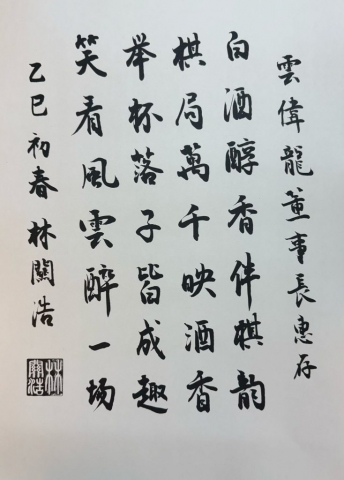 雲偉龍董事長惠存
白酒醇香伴棋韵
棋局萬千映酒香
举杯落子皆成趣
笑看風雲醉一场
乙巳初春林關浩
林關浩